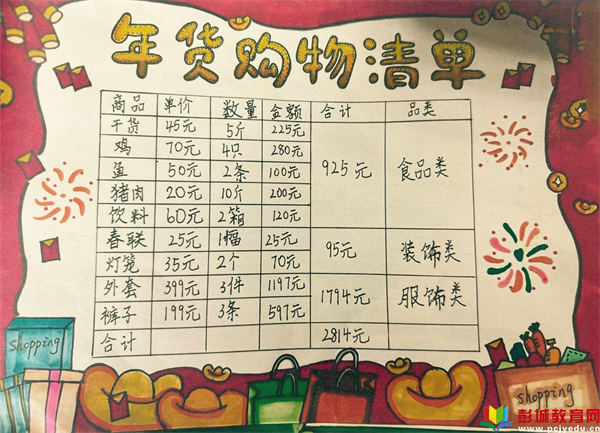 年货购物清单
商品 单价 数量 金额 合计 品类
干货 45元 5斤 225元
鸡 70元 4只 280元
鱼 50元 2条 100元 925元 食品类
猪肉 20元 10斤 200元
饮料 60元 2箱 120元
春联 25元 1幅 25元 95元 装饰类
灯笼 35元 2个 70元
外套 399元 3件 1197元 1794元 服饰类
裤子 199元 3条 597元
合计 2814元
shopping
shopping
彭城教育网
www.pcjyedu.cn